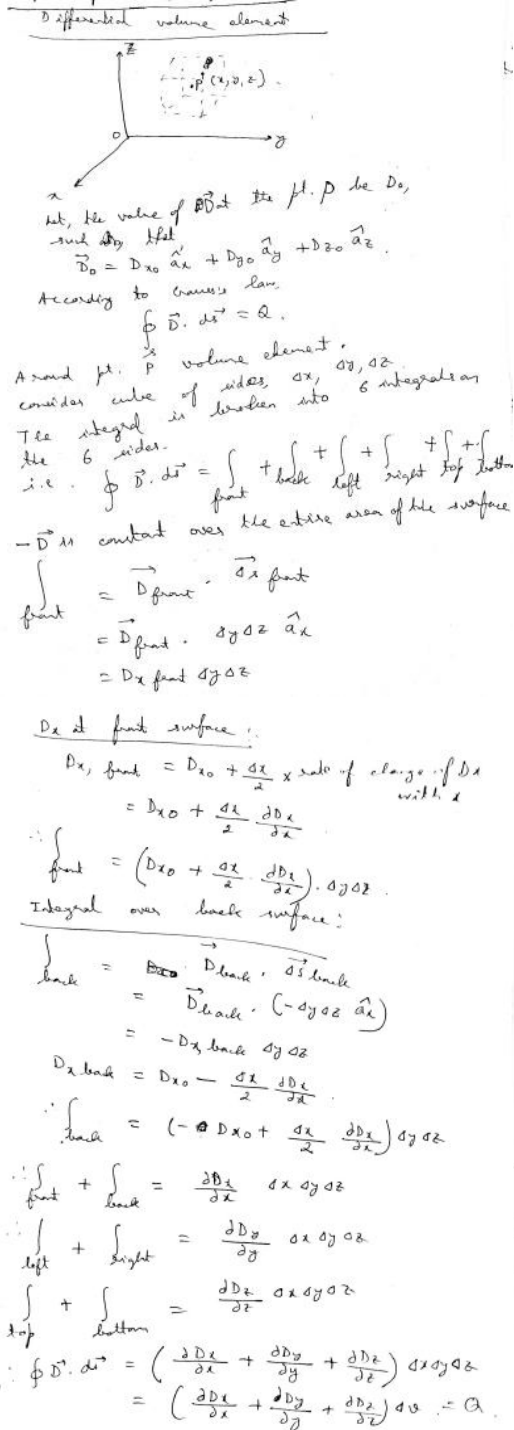 Differential volume element
z
P
.P (x, y, z)
O
y
x
Let, the value of D⃗ at the pt. P be D₀,
such that
D⃗₀ = Dx₀ âx + Dy₀ ây + Dz₀ âz.
According to Gauss's law,
∮s D⃗ . ds⃗ = Q.
Around pt. P volume element.
consider cube of sides, Δx, Δy, Δz
The integral is broken into 6 integrals on
the 6 sides.
i.e. ∮ D⃗ . ds⃗ = ∫front + ∫back + ∫left + ∫right + ∫top + ∫bottom
- D⃗ is constant over the entire area of the surface
∫front = D⃗front . Δs⃗ front
= D⃗front . Δy Δz âx
= Dx front Δy Δz
Dx at front surface :
Dx, front = Dx₀ + Δx/2 x rate of change of Dx
with x
= Dx₀ + Δx/2 . ∂Dx/∂x
∴ ∫front = (Dx₀ + Δx/2 . ∂Dx/∂x) . Δy Δz.
Integral over back surface :
∫back = D⃗back . Δs⃗ back
= D⃗back . (-Δy Δz âx)
= -Dx, back Δy Δz
Dx back = Dx₀ - Δx/2 ∂Dx/∂x.
∴ ∫back = (-Dx₀ + Δx/2 ∂Dx/∂x) Δy Δz
∴ ∫front + ∫back = ∂Dx/∂x Δx Δy Δz
∴ ∫left + ∫right = ∂Dy/∂y Δx Δy Δz
∫top + ∫bottom = ∂Dz/∂z Δx Δy Δz
∴ ∮ D⃗ . ds⃗ = (∂Dx/∂x + ∂Dy/∂y + ∂Dz/∂z) Δx Δy Δz
= (∂Dx/∂x + ∂Dy/∂y + ∂Dz/∂z) Δv = Q